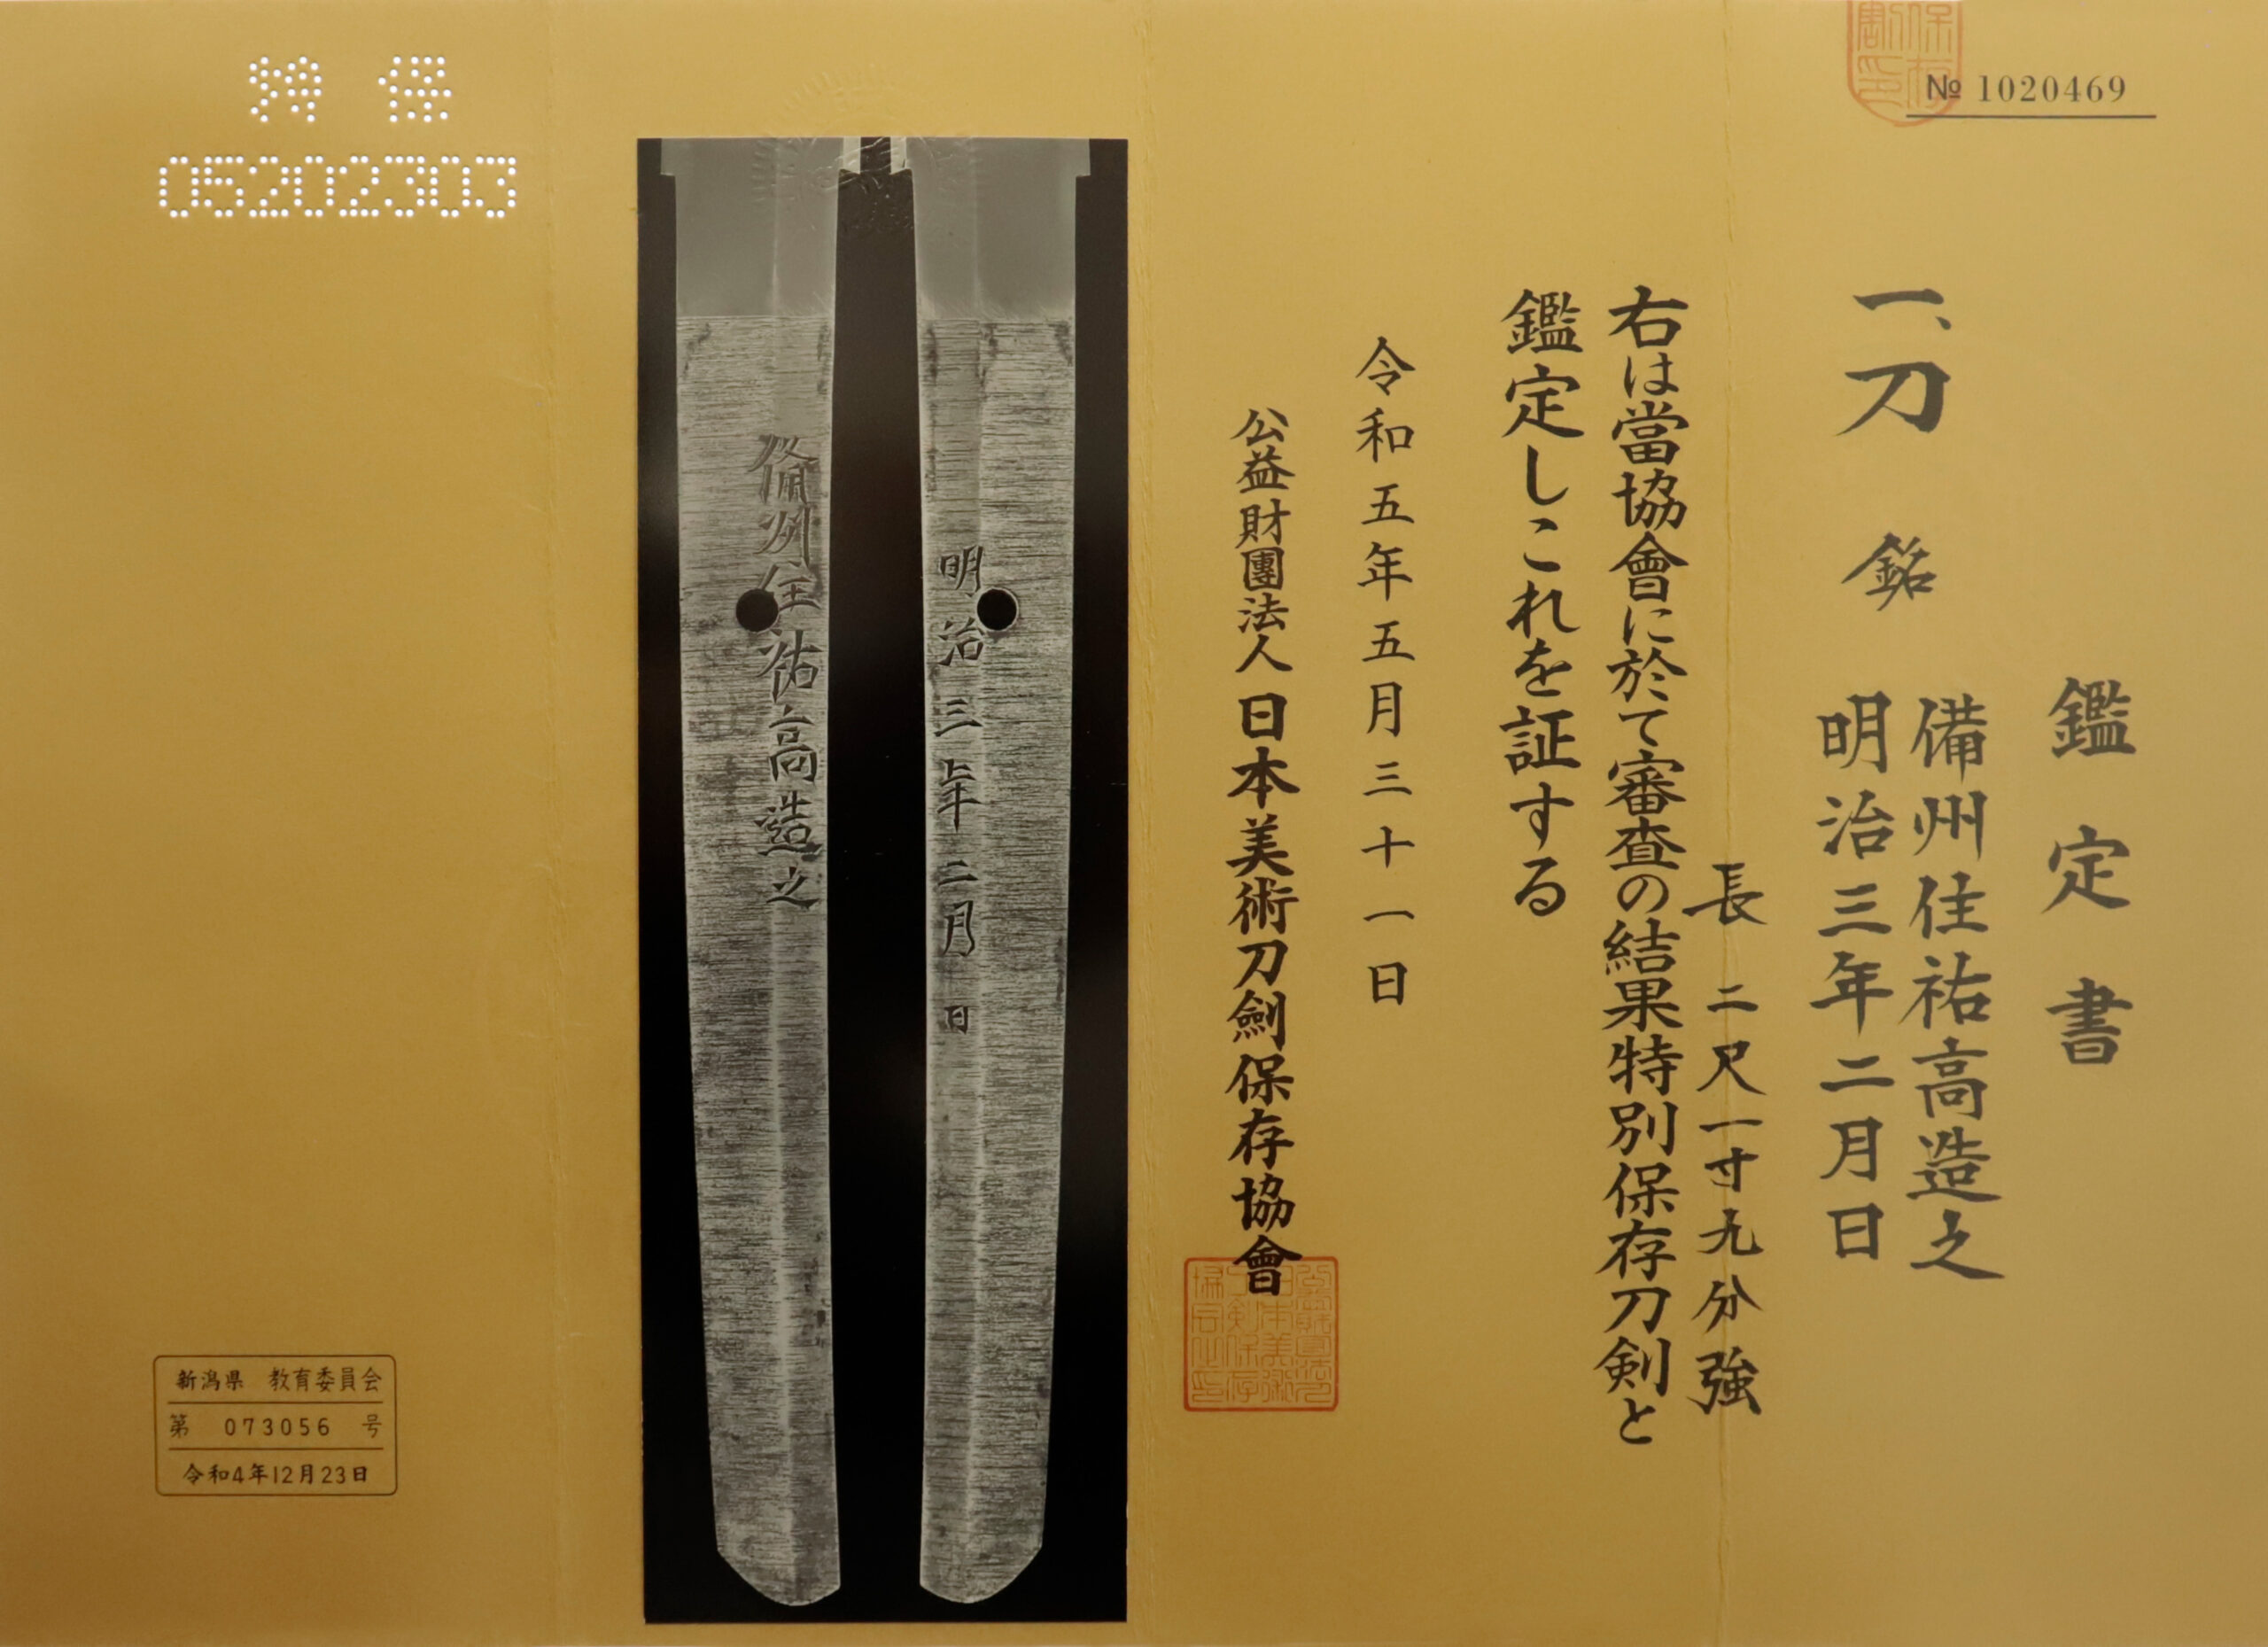 № 1020469
鑑定書
一、刀 銘 備州住祐高造之
明治三年二月日
長 二尺一寸九分強
右は當協會に於て審査の結果特別保存刀剣と
鑑定しこれを証する
令和五年五月三十一日
公益財團法人 日本美術刀劍保存協會
明治三年二月日
備州住祐高造之
特保
05202303
新潟県 教育委員会
第 073056 号
令和4年12月23日